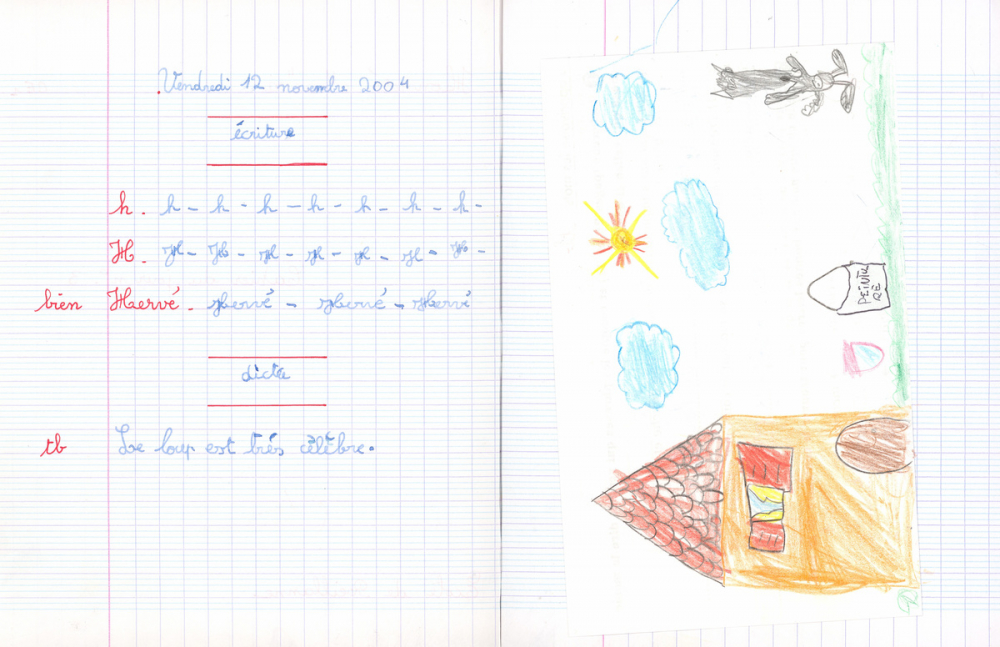 Vendredi 12 novembre 2004
écriture
h. h - h - h - h - h - h - h -
H. H - H - H - H - H - H - H -
bien Hervé. Hervé - Hervé - Hervé
dictée
tb Le loup est très célèbre.
PEINTU
RE